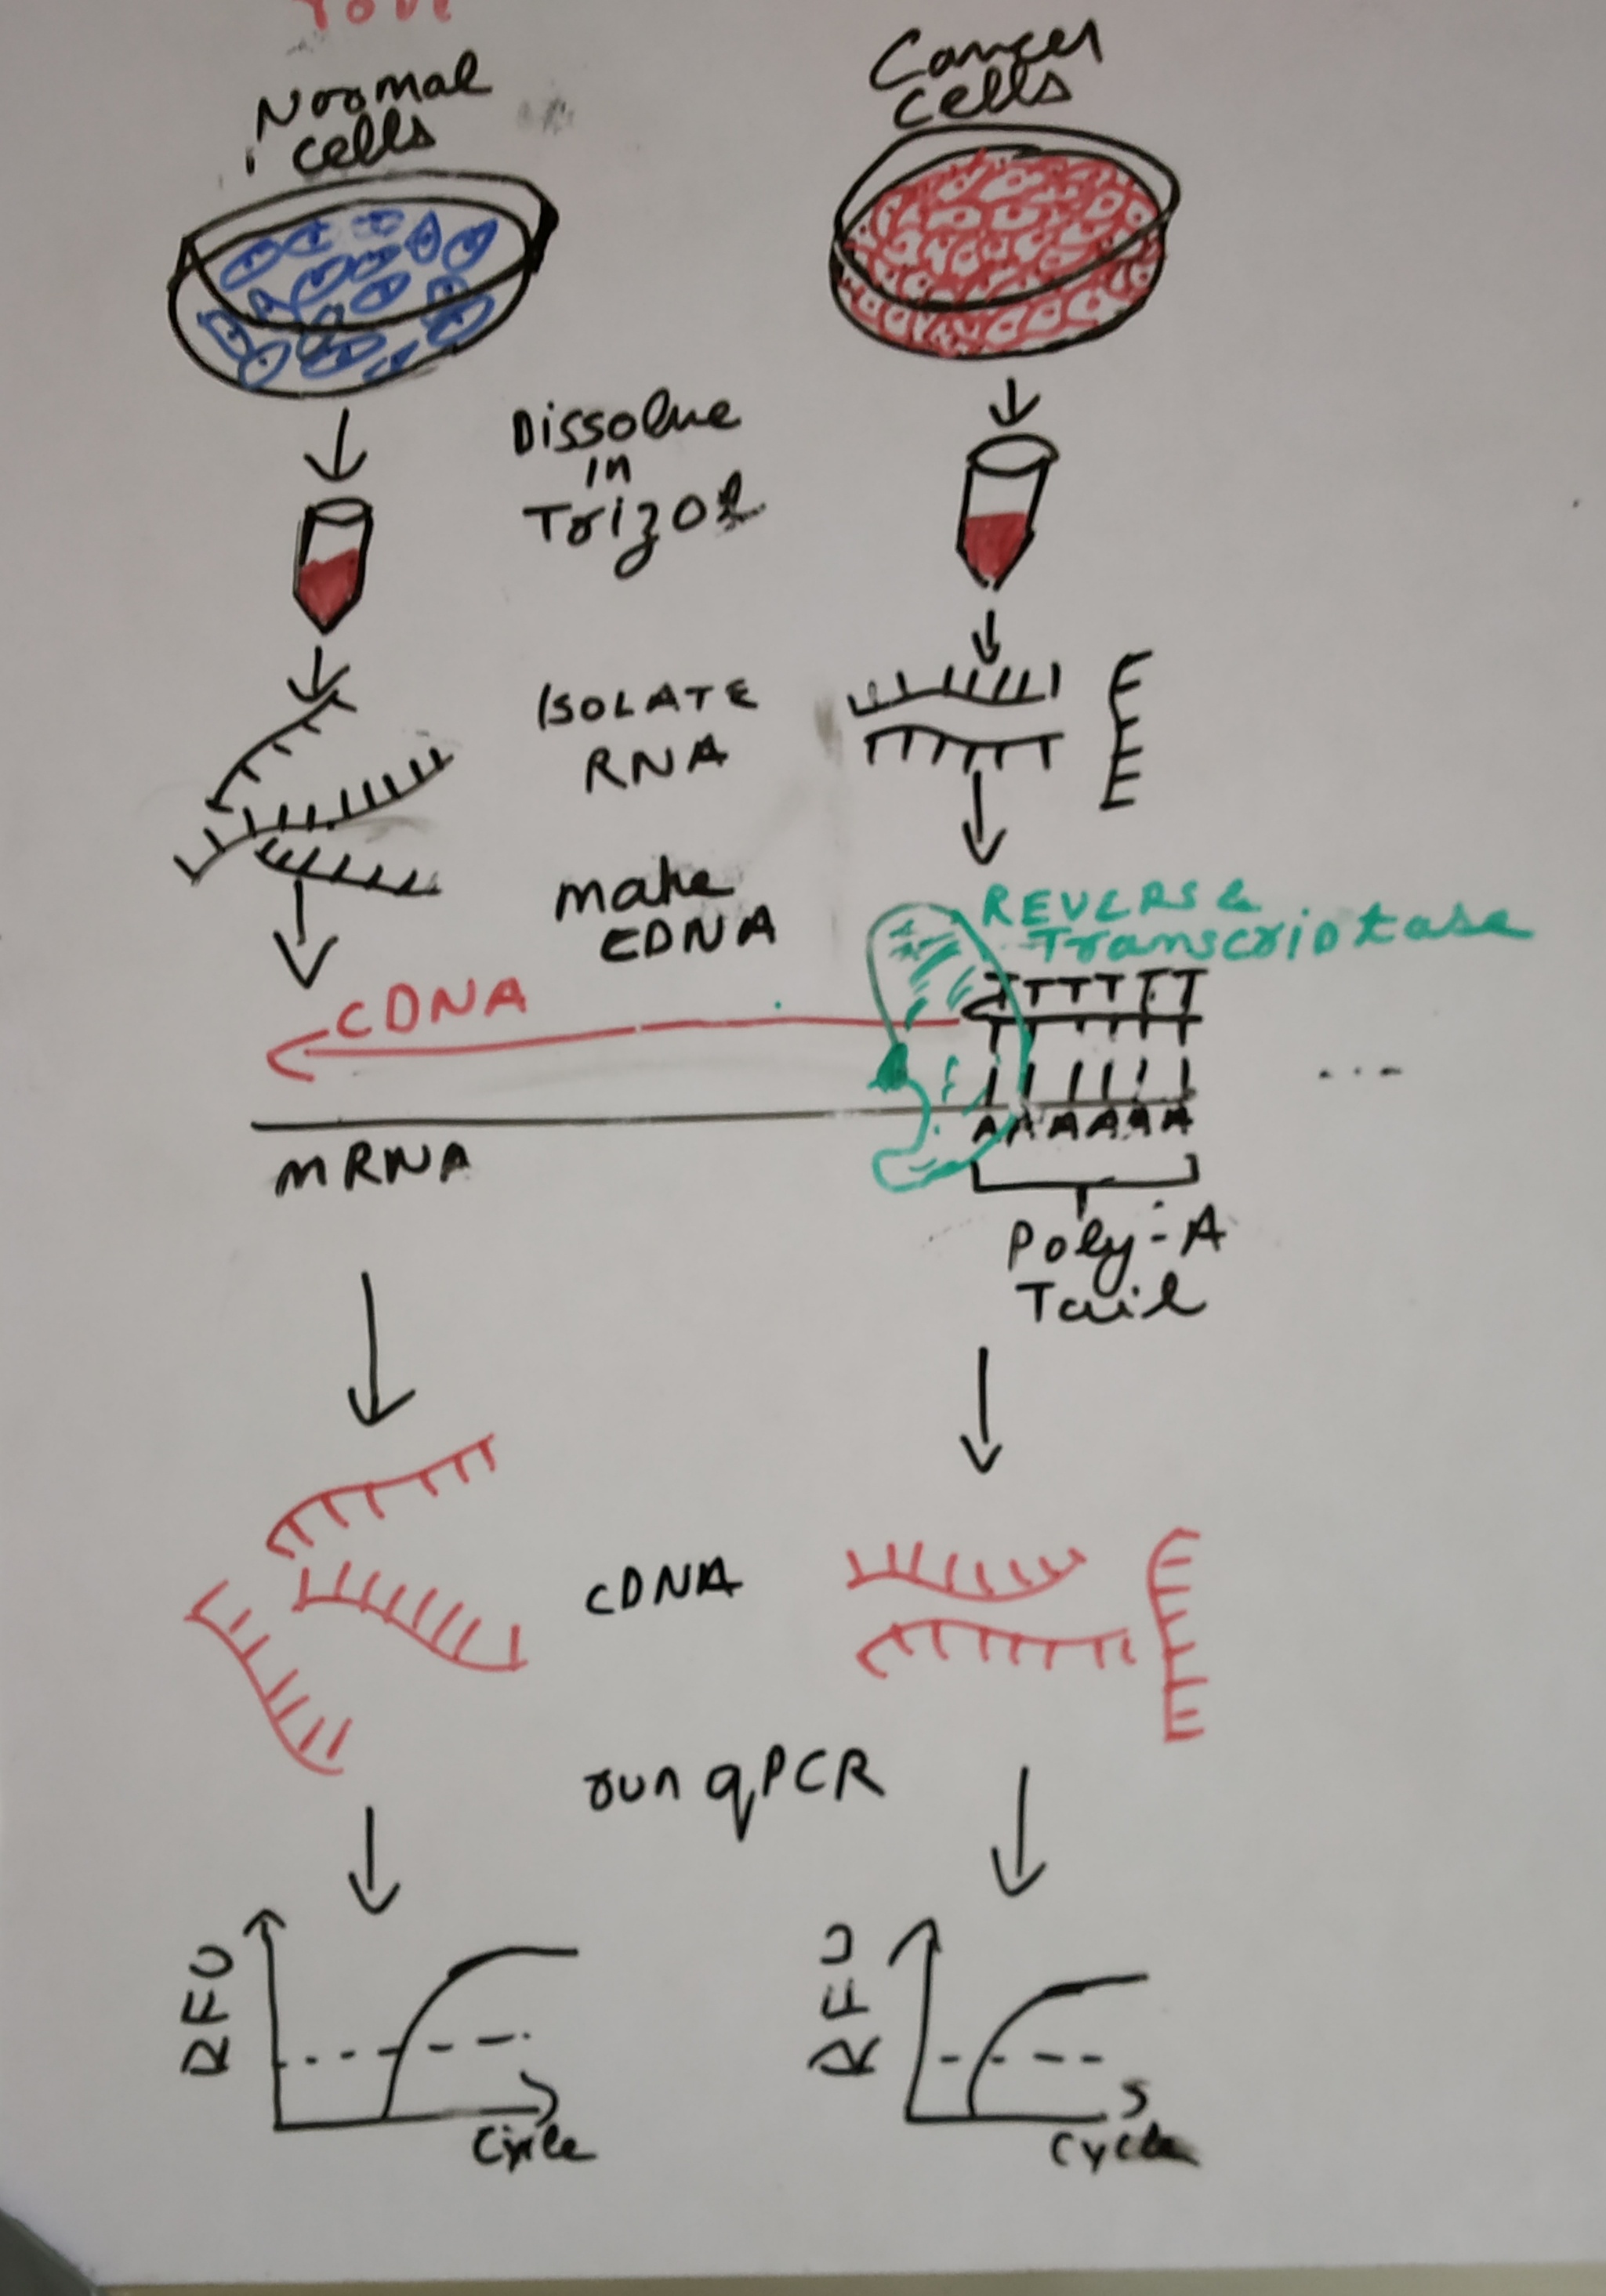 Normal
cells
Cancer
cells
Dissolve
in
Trizol
ISOLATE
RNA
make
cDNA
REVERSE
Transcriptase
cDNA
TTTTTT
AAAAAA
mRNA
Poly-A
Tail
cDNA
run qPCR
RFU
Cycle
RFU
Cycle